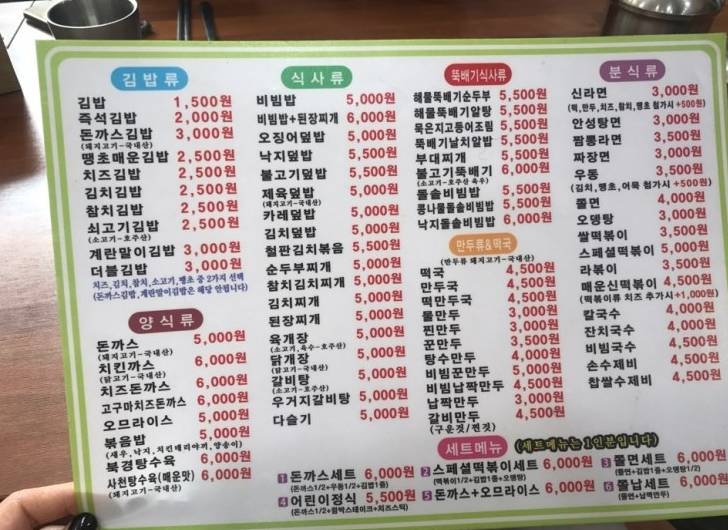 김밥류
김밥 1,500원
즉석김밥 2,000원
돈까스김밥 3,000원
(돼지고기-국내산)
땡초매운김밥 2,500원
치즈김밥 2,500원
김치김밥 2,500원
참치김밥 2,500원
쇠고기김밥 2,500원
(소고기-호주산)
계란말이김밥 3,000원
더블김밥 3,000원
치즈,김치,참치,소고기,땡초 중 2가지 선택
(돈까스김밥,계란말이김밥은 해당 안됩니다)
양식류
돈까스 5,000원
(돼지고기-국내산)
치킨까스 6,000원
(닭고기-국내산)
치즈돈까스 6,000원
고구마치즈돈까스 6,000원
오므라이스 5,000원
볶음밥 5,000원
(새우,낙지,치킨데리야끼,양송이)
북경탕수육 6,000원
사천탕수육(매운맛) 6,000원
(돼지고기-국내산)
식사류
비빔밥 5,000원
비빔밥+된장찌개 6,000원
오징어덮밥 5,000원
낙지덮밥 5,500원
불고기덮밥 5,500원
제육덮밥 5,500원
(돼지고기-국내산)
카레덮밥 5,000원
김치덮밥 5,000원
철판김치볶음 5,500원
순두부찌개 5,000원
참치김치찌개 5,000원
김치찌개 5,000원
된장찌개 5,000원
육개장 5,000원
(소고기,육수-호주산)
닭개장 5,000원
(닭고기-국내산)
갈비탕 5,000원
(소고기-호주산)
우거지갈비탕 5,000원
다슬기 5,000원
뚝배기식사류
해물뚝배기순두부 5,500원
해물뚝배기알탕 5,500원
묵은지고등어조림 5,500원
뚝배기날치알밥 5,500원
부대찌개 5,500원
불고기뚝배기 6,000원
(소고기-호주산 육우)
돌솥비빔밥 5,500원
콩나물돌솥비빔밥 5,500원
낙지돌솥비빔밥 6,000원
만두류&떡국
(만두류 돼지고기-국내산)
떡국 4,500원
만두국 4,500원
떡만두국 4,500원
물만두 3,000원
찐만두 3,000원
군만두 3,000원
탕수만두 4,500원
비빔군만두 4,500원
비빔납짝만두 4,500원
납짝만두 3,000원
갈비만두 4,500원
(구운것/찐것)
분식류
신라면 3,000원
(떡,만두,치즈,참치,땡초 첨가시 +500원)
안성탕면 3,000원
짬뽕라면 3,500원
짜장면 3,500원
우동 3,500원
(김치,땡초,어묵 첨가시 +500원)
쫄면 4,000원
오뎅탕 3,000원
쌀떡볶이 3,000원
스페셜떡볶이 5,000원
라볶이 3,500원
매운신떡볶이 4,500원
(떡볶이류 치즈 추가시+1,000원)
칼국수 4,000원
잔치국수 4,000원
비빔국수 4,500원
손수제비 4,500원
찹쌀수제비 4,500원
세트메뉴 (세트메뉴는 1인분입니다)
1 돈까스세트 6,000원
(돈까스1/2+우동1/2+김밥1줄)
2 스페셜떡볶이세트 6,000원
(떡볶이1/2+김밥1줄+오뎅탕)
3 쫄면세트 6,000원
(쫄면+김밥1줄+오뎅탕1/2)
4 어린이정식 5,500원
(돈까스1/2+함박스테이크+치즈스틱)
5 돈까스+오므라이스 6,000원
6 쫄납세트 6,000원
(쫄면+납짝만두)